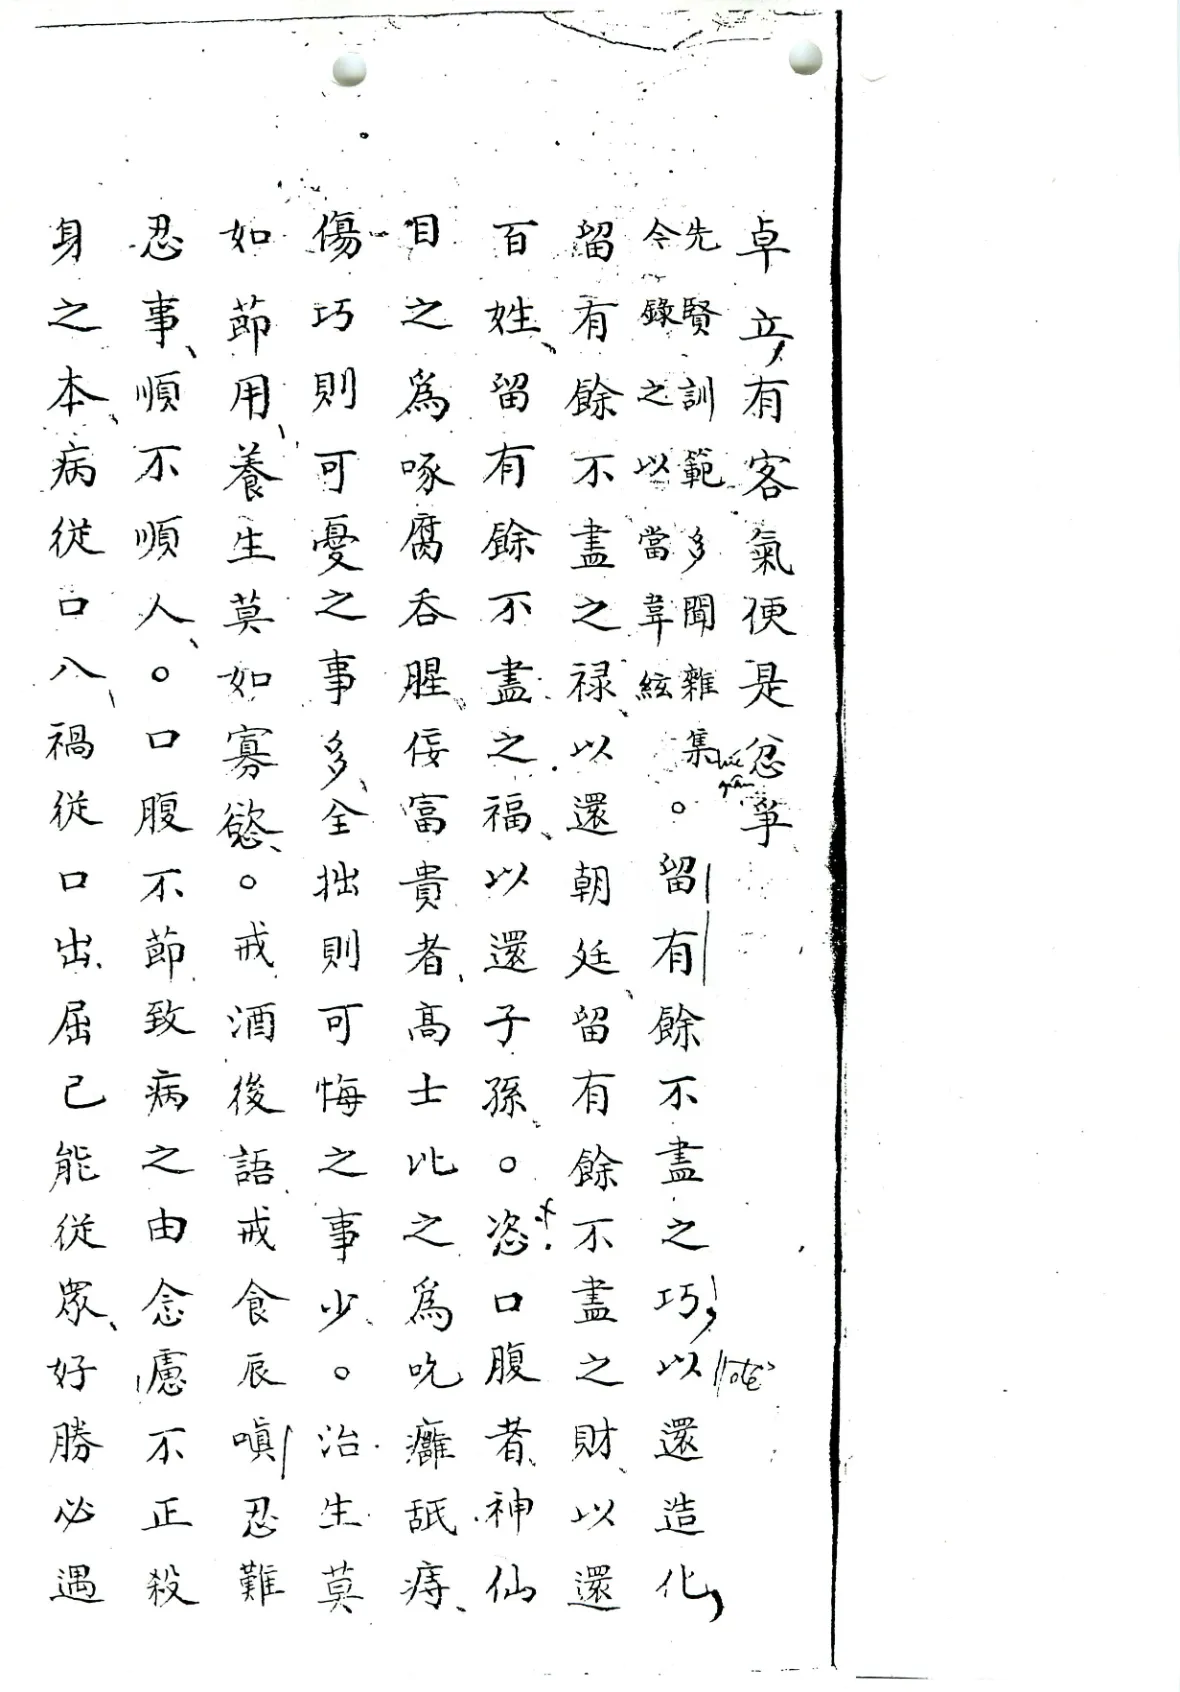 卓立有客氣便是忿爭
先賢訓範多聞雜集
今錄之以當韋絃
。留有餘不盡之巧以還造化
留有餘不盡之祿以還朝廷留有餘不盡之財以還
百姓留有餘不盡之福以還子孫。恣口腹者神仙
目之為啄腐吞腥佞富貴者高士比之為吮癰舐痔
傷巧則可憂之事多全拙則可悔之事少。治生莫
如節用養生莫如寡慾。戒酒後語戒食辰嗔忍難
忍事順不順人。口腹不節致病之由念慮不正殺
身之本病從口入禍從口出屈己能從眾好勝必遇